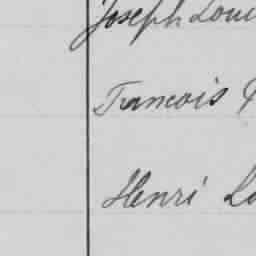 Joseph Loui
Francois
Henri Lo